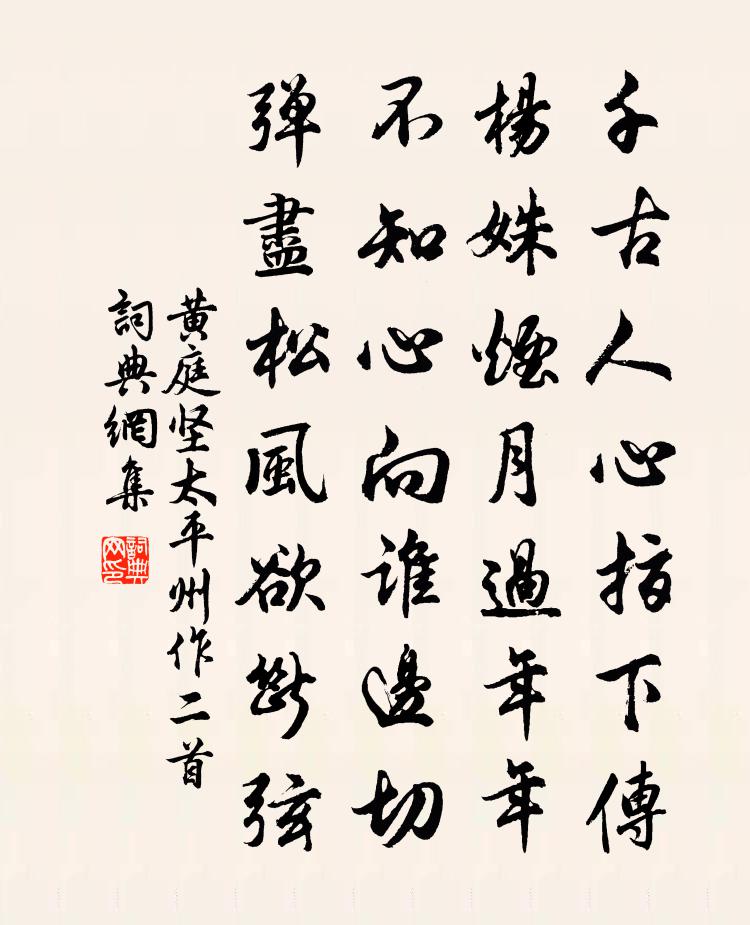 千古人心指下傳
楊姝煙月過年年
不知心向誰邊切
彈盡松風欲斷弦
黄庭坚太平州作二首
詞典網集
詞典網印